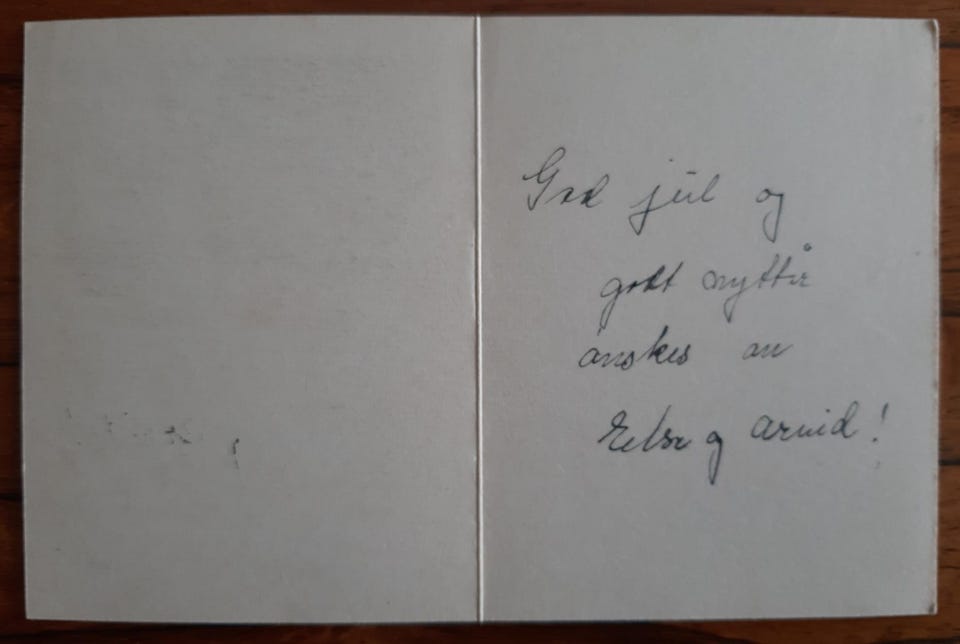 God jul og
godt nyttår
ønskes av
Else og Arvid!